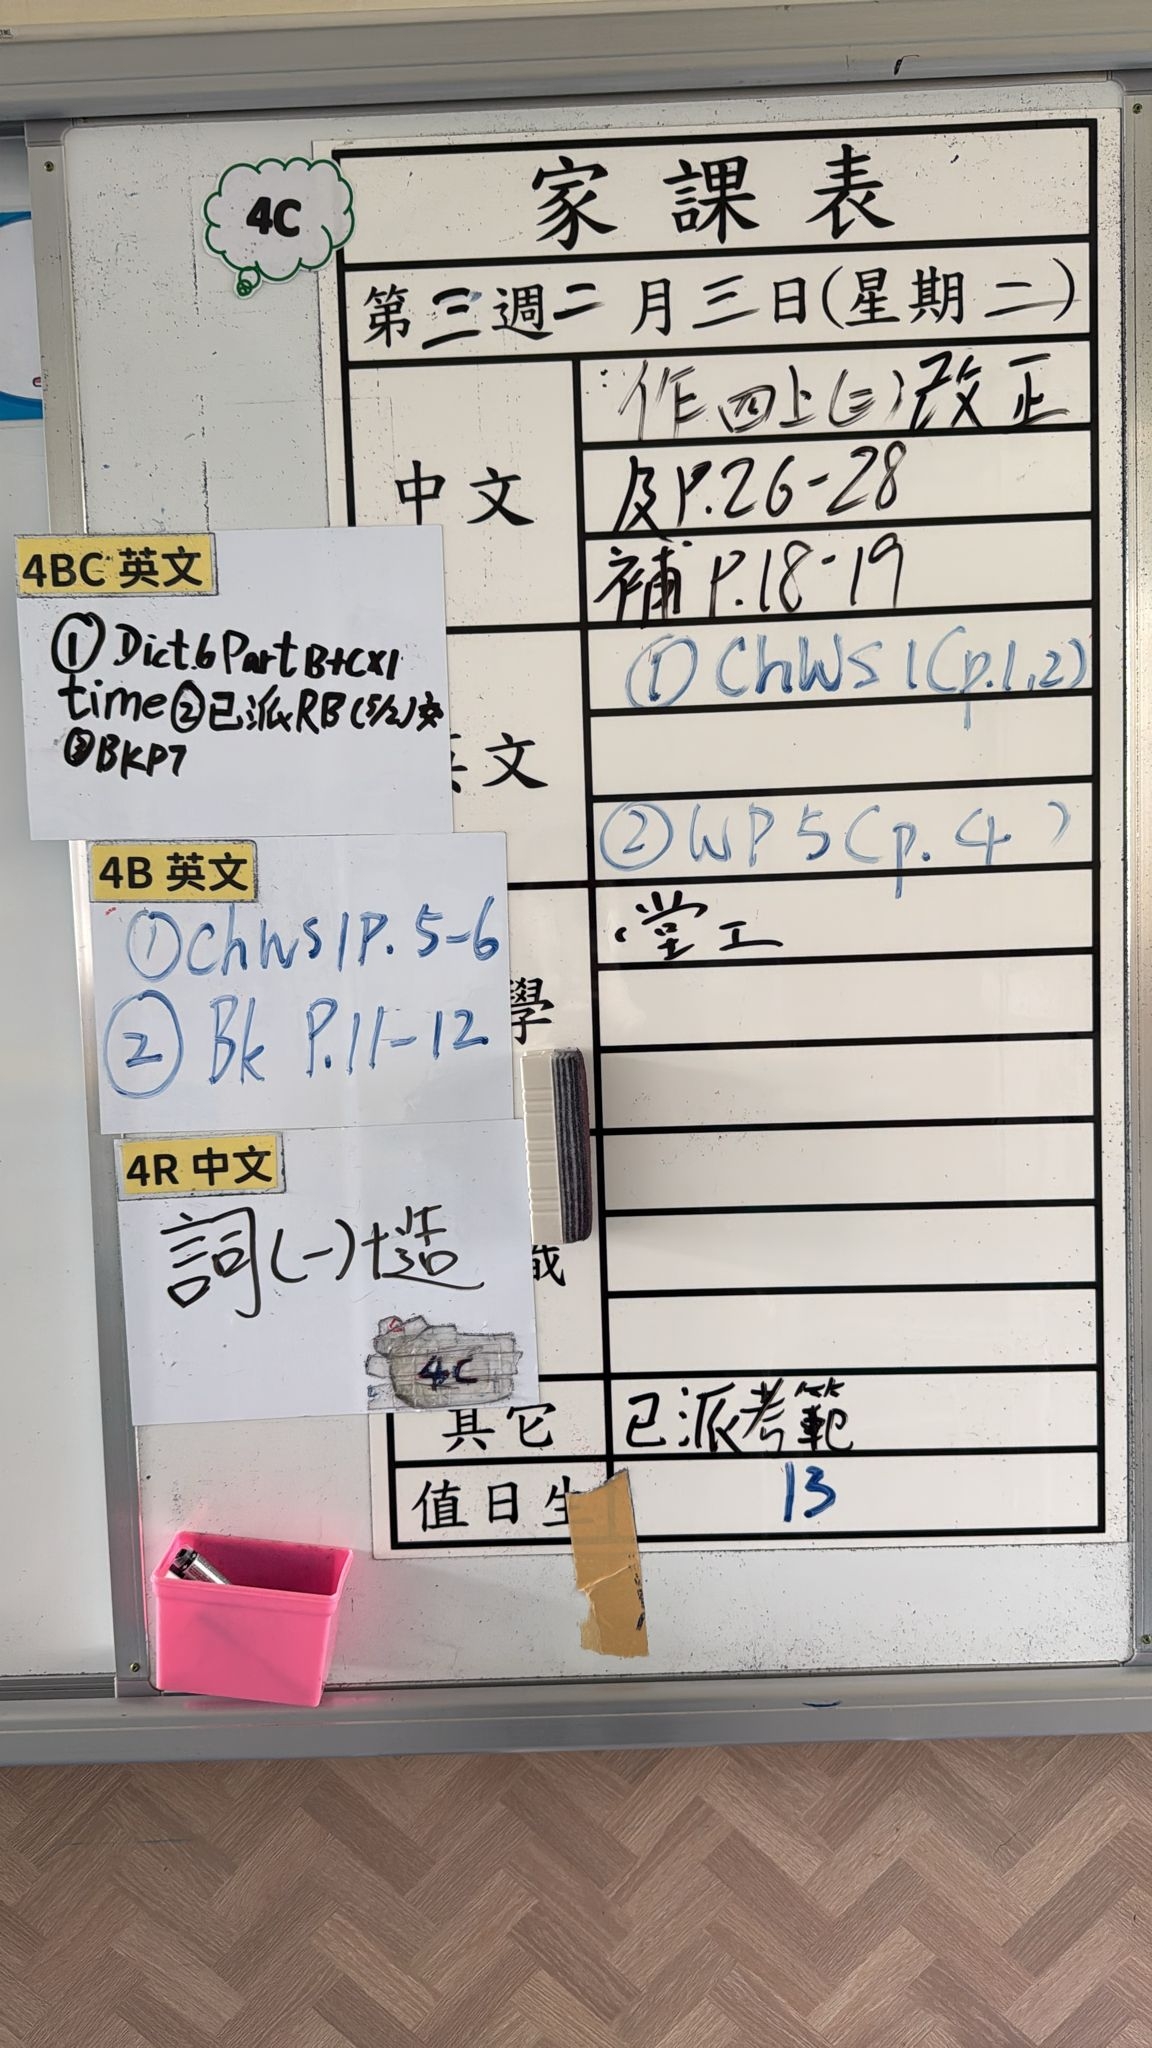 4C
家課表
第三週二月三日(星期二)
中文
作四上(三)改正
及P.26-28
補P.18-19
4BC 英文
① Dict.6 Part B+C×1
time ② 已派RB(5/2)交
③ BK P7
文
① ChWS 1 (p.1,2)
② WP 5 (p. 4 )
4B 英文
① ChWS 1 P. 5-6
② Bk P.11-12
學
堂工
4R 中文
詞(一)+造
4C
其它
已派考範
值日生
13